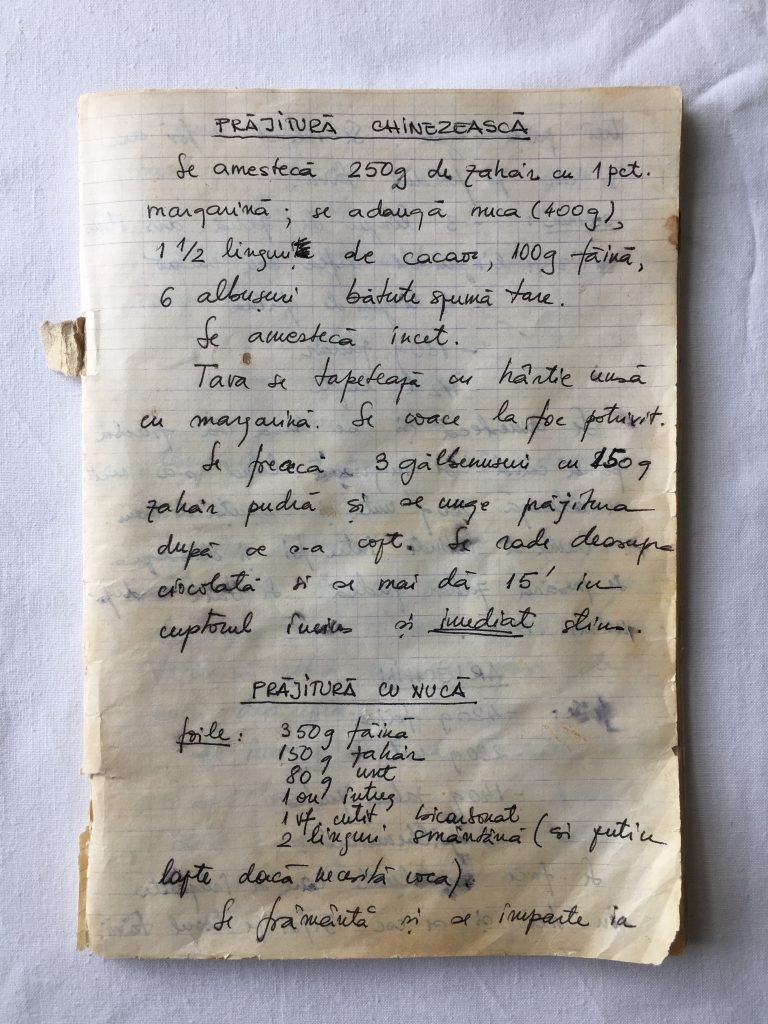 PRĂJITURĂ CHINEZEASCĂ
Se amestecă 250g de zahăr cu 1 pct.
margarină; se adaugă nuca (400g),
1 1/2 linguri de cacao, 100g făină,
6 albușuri bătute spumă tare.
Se amestecă încet.
Tava se tapetează cu hârtie unsă
cu margarină. Se coace la foc potrivit.
Se freacă 3 gălbenușuri cu 150g
zahăr pudră și se unge prăjitura
după ce s-a copt. Se rade deasupra
ciocolată si se mai dă 15' in
cuptorul încins și imediat stins.
PRĂJITURĂ CU NUCĂ
foile: 350g făină
150g zahăr
80g unt
1 ou întreg
1 vf. cutit bicarbonat
2 linguri smântână (si putin
lapte dacă necesită coca).
Se frământă și se imparte in